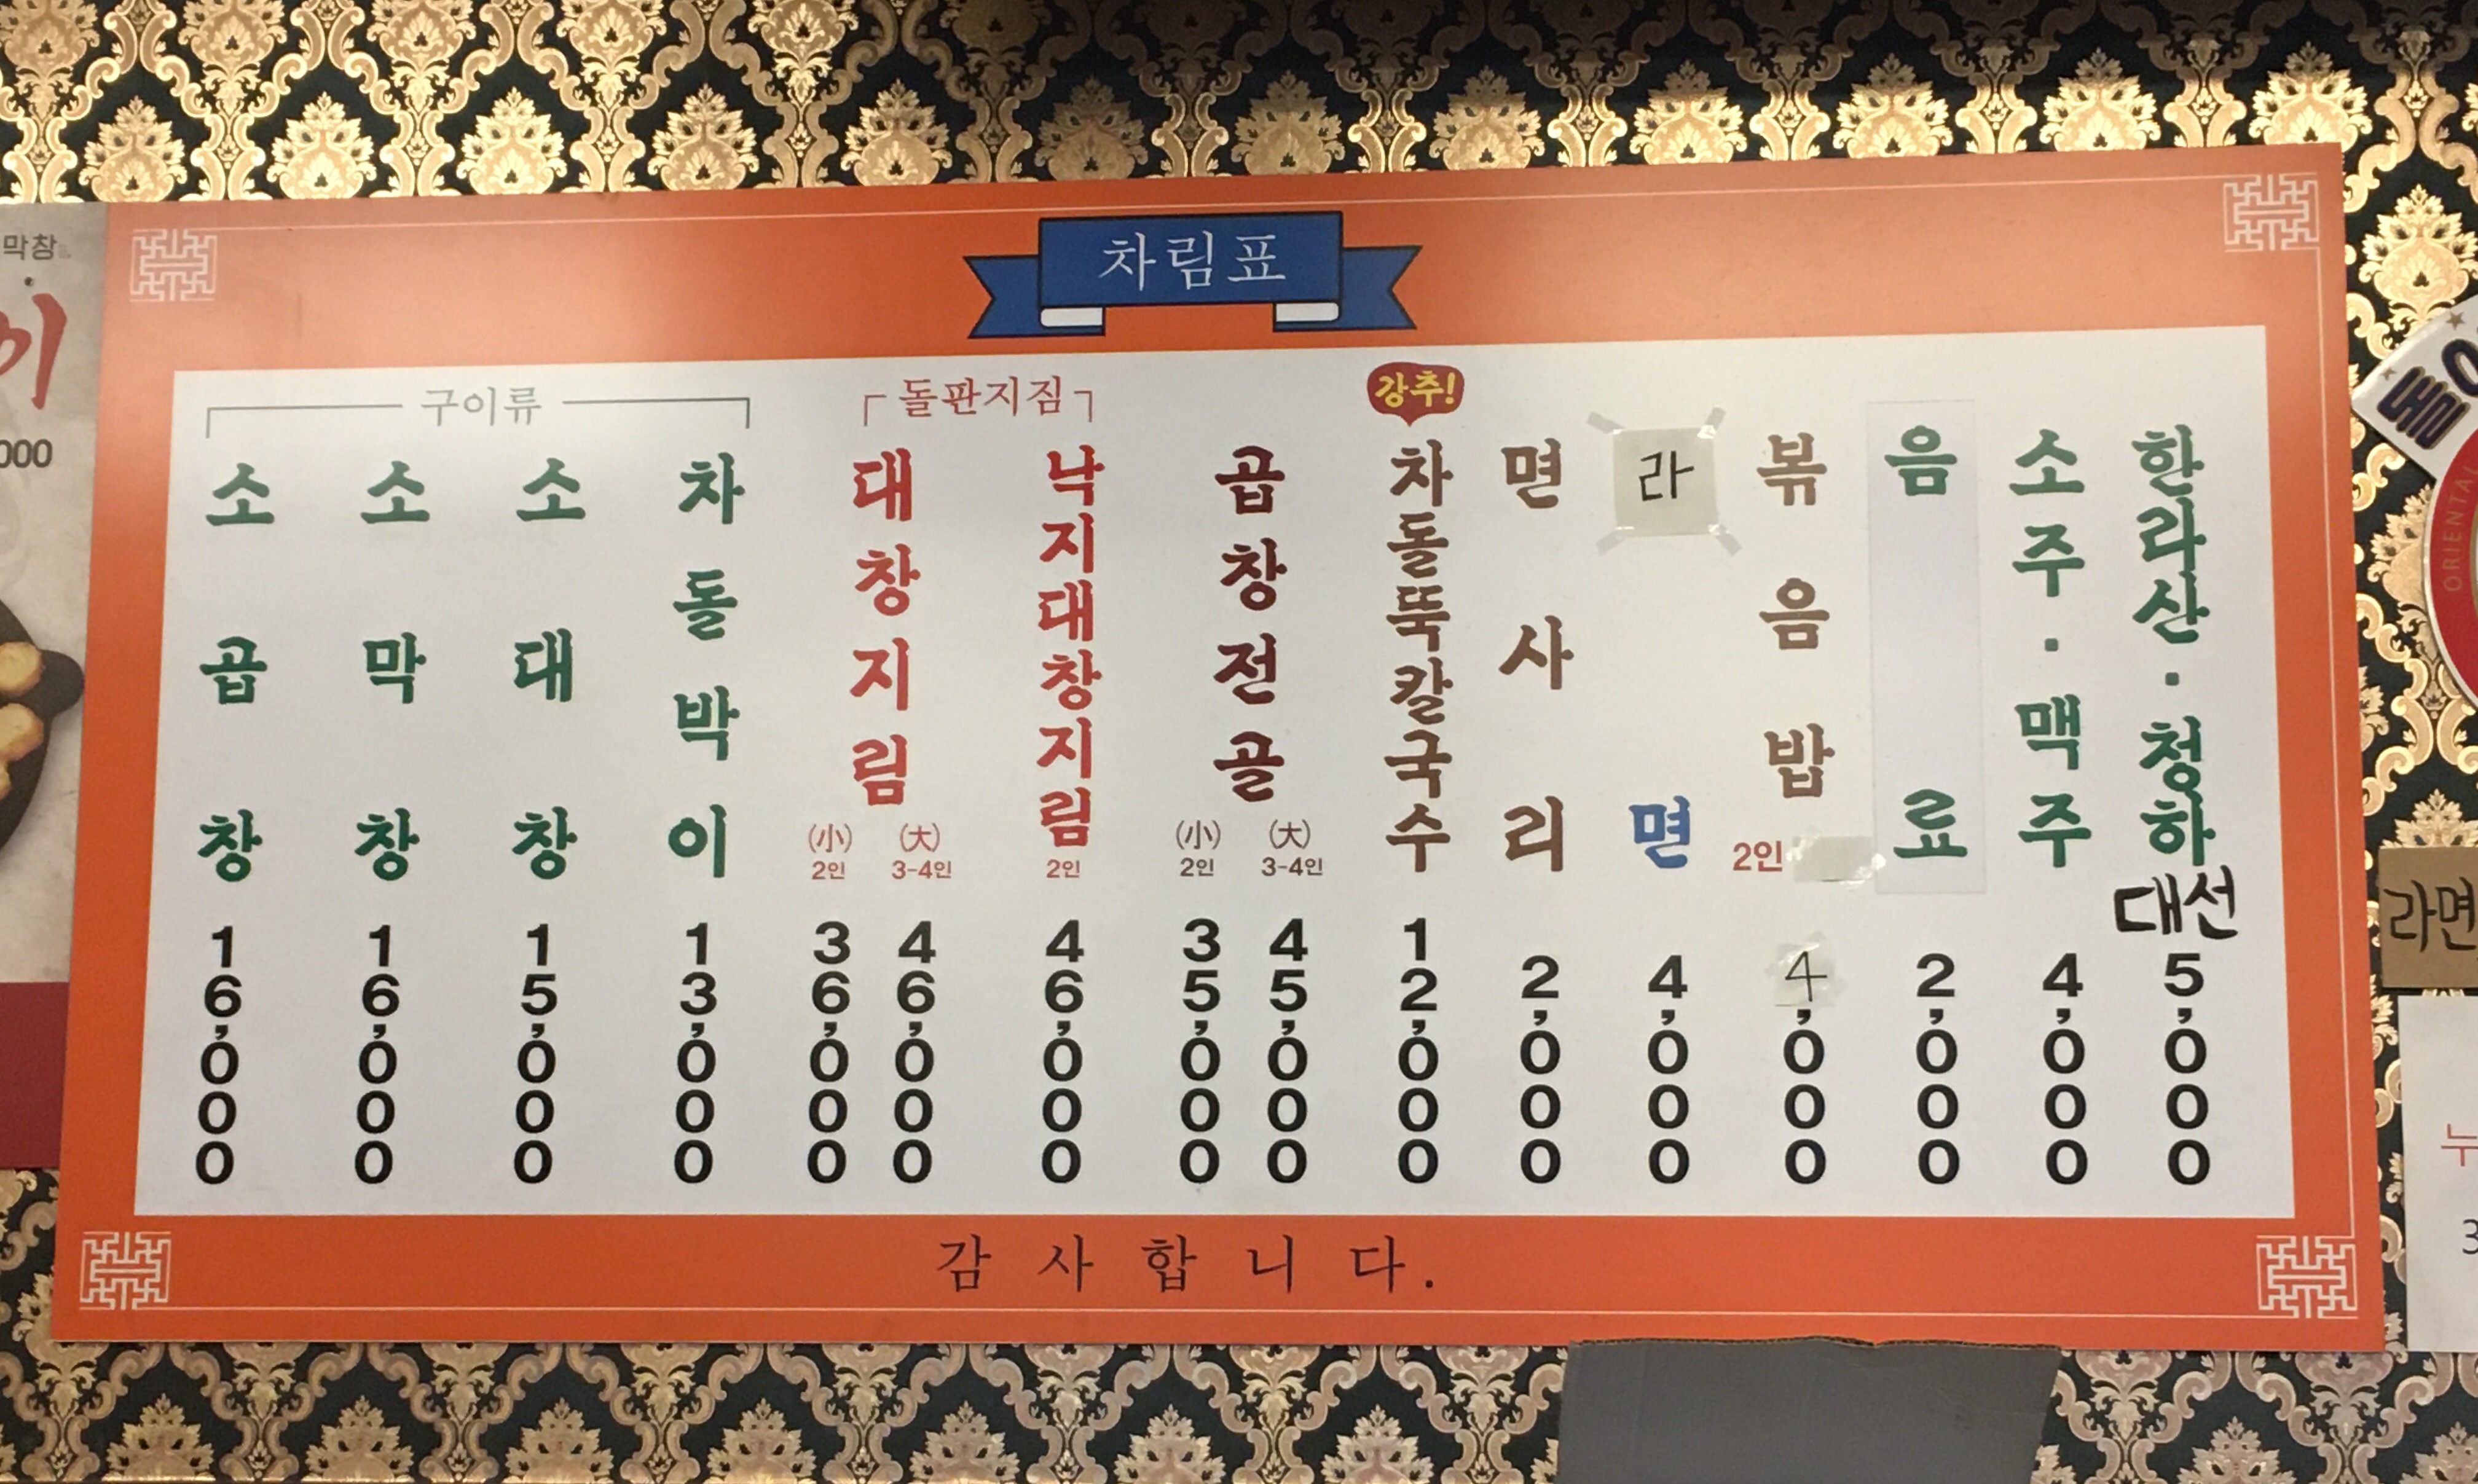 차림표
구이류
소곱창 16,000
소막창 16,000
소대창 15,000
차돌박이 13,000
돌판지짐
대창지림
(小) 2인 36,000
(大) 3-4인 46,000
낙지대창지림 2인 46,000
곱창전골
(小) 2인 35,000
(大) 3-4인 45,000
강추!
차돌뚝칼국수 12,000
면사리 2,000
라면 4,000
볶음밥 2인 4,000
음료 2,000
소주·맥주 4,000
한라산·청하 대선 5,000
감사합니다.
막창
이
000
ORIENTAL
라면
누
3